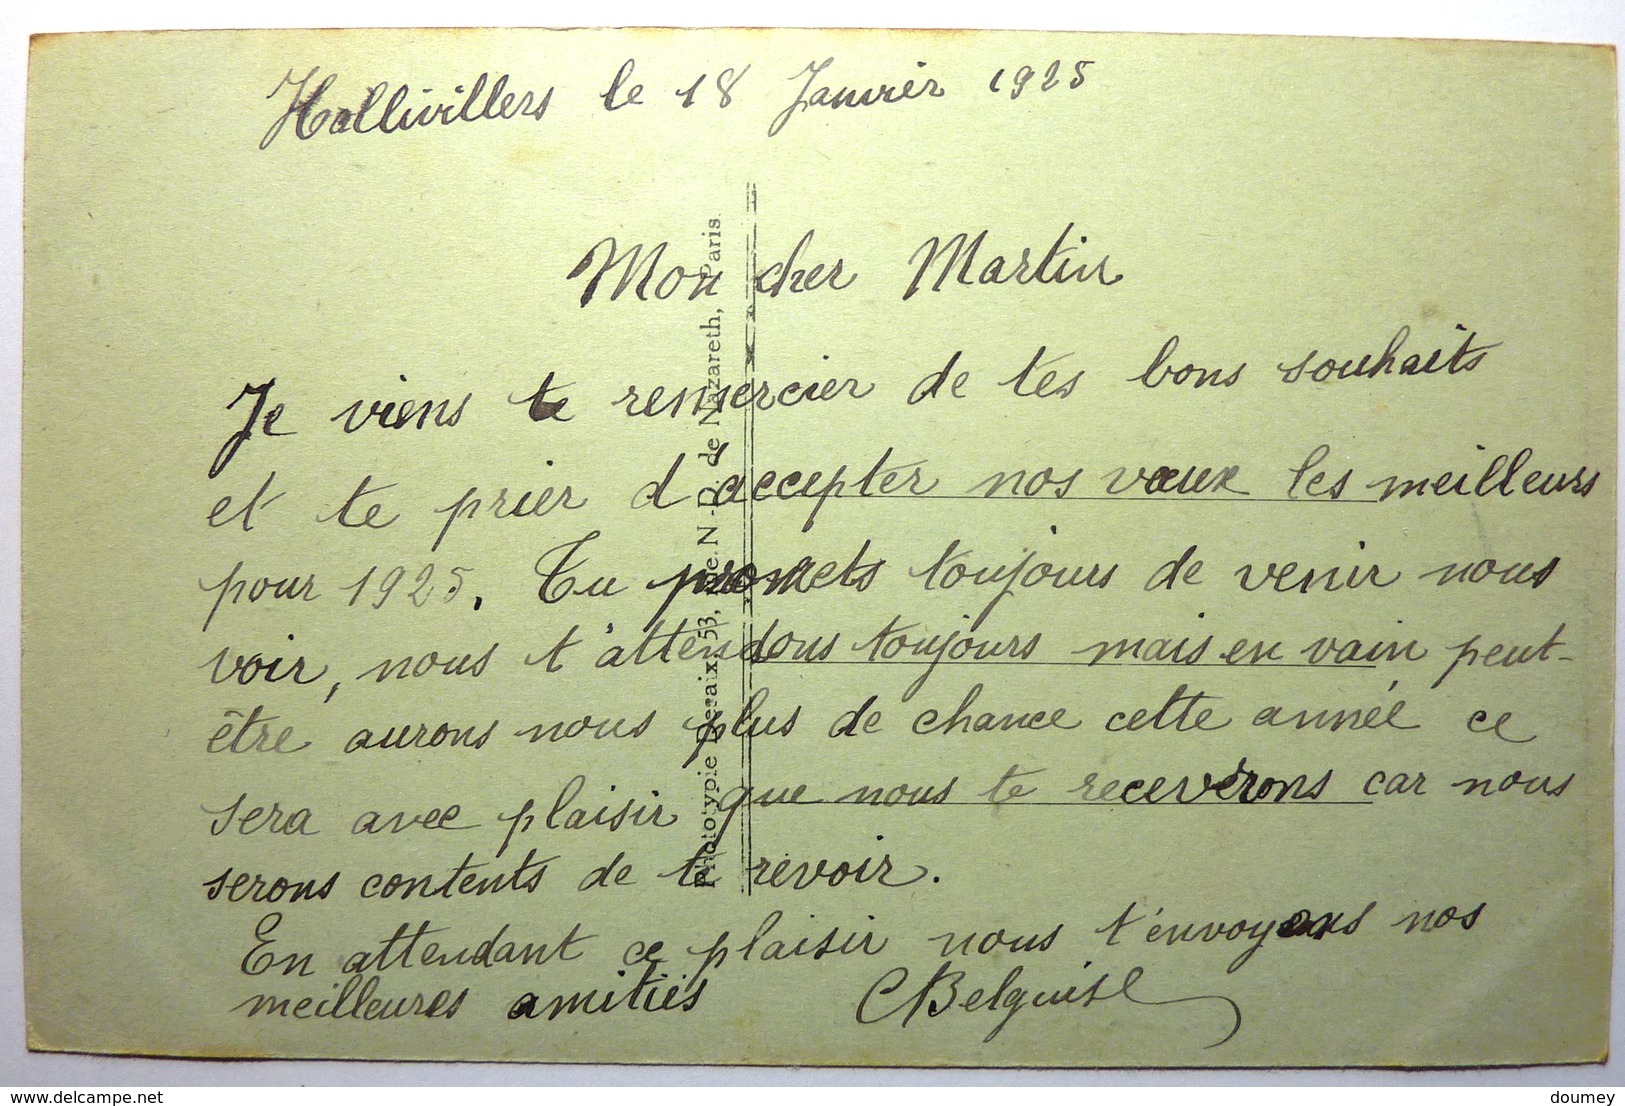 Hallivillers le 18 Janvier 1925
Mon cher Martin
Je viens te remercier de tes bons souhaits
et te prier d'accepter nos vœux les meilleurs
pour 1925. Tu promets toujours de venir nous
voir, nous t'attendons toujours mais en vain peut-
être aurons nous plus de chance cette année ce
sera avec plaisir que nous te recevérons car nous
serons contents de te revoir.
En attendant ce plaisir nous t'envoyons nos
meilleures amitiés CBelguise
Phototypie 53, rue N.-D. de Nazareth, Paris
delcampe.net
doumey